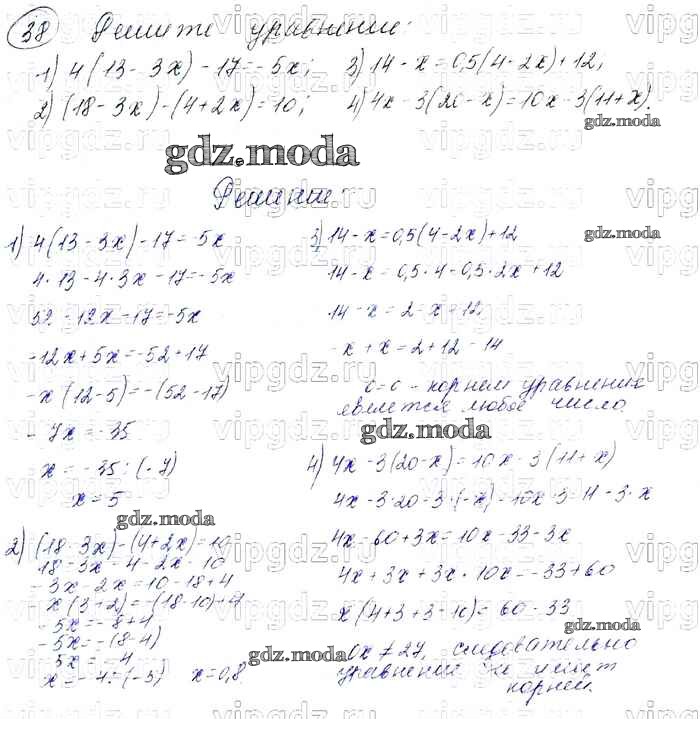 38 Решите уравнение:
1) 4(13 - 3x) - 17 = -5x; 3) 14 - x = 0,5(4 - 2x) + 12;
2) (18 - 3x) - (4 + 2x) = 10; 4) 4x - 3(20 - x) = 10x - 3(11 + x).
gdz.moda
Решение:
1) 4(13 - 3x) - 17 = -5x
4 · 13 - 4 · 3x - 17 = -5x
52 - 12x - 17 = -5x
-12x + 5x = -52 + 17
-x(12 - 5) = -(52 - 17)
-7x = -35
x = -35 : (-7)
x = 5
gdz.moda
2) (18 - 3x) - (4 + 2x) = 10
18 - 3x - 4 - 2x = 10
-3x - 2x = 10 - 18 + 4
-x(3 + 2) = -(18 - 10) + 4
-5x = -8 + 4
-5x = -(8 - 4)
-5x = -4
x = -4 : (-5) x = 0,8
gdz.moda
3) 14 - x = 0,5(4 - 2x) + 12
14 - x = 0,5 · 4 - 0,5 · 2x + 12
14 - x = 2 - x + 12
-x + x = 2 + 12 - 14
0 = 0 - корнем уравнения
является любое число.
gdz.moda
4) 4x - 3(20 - x) = 10x - 3(11 + x)
4x - 3 · 20 - 3 · (-x) = 10x - 3 · 11 - 3 · x
4x - 60 + 3x = 10x - 33 - 3x
4x + 3x + 3x - 10x = -33 + 60
x(4 + 3 + 3 - 10) = 60 - 33
0x ≠ 27, следовательно
уравнение не имеет
корней.
gdz.moda
gdz.moda
gdz.moda
vipgdz.ru